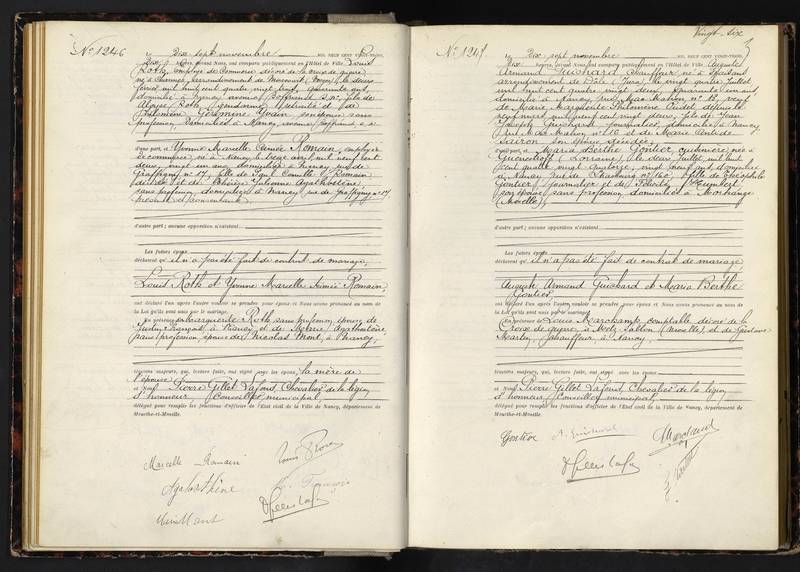 N° 1246
Le Dix sept novembre mil neuf cent vingt-trois,
Dix heures, devant Nous, ont comparu publiquement en l'Hôtel de Ville Louis
Roth, employé de Commerce décoré de la croix de guerre,
né à Charmes, arrondissement de Mirecourt (Vosges), le deux
février mil huit cent quatre vingt trois, quarante ans,
domicilié à Nancy, fils de
Roth, retraité et de
Philomène Germaine son épouse sans
profession, domiciliés à Nancy
d'une part, & Yvonne Marcelle Aimée Romain, employée
de commerce, née à Nancy, le treize avril mil neuf cent
deux, vingt un ans, domiciliée à Nancy rue de
Graffigny n° 17, fille de Paul Camille Romain
décédé et de Julienne Agathveline
sans profession, domiciliée à Nancy, rue de Graffigny n° 17,
présente et consentante
d'autre part ; aucune opposition n'existant.
Les futurs époux
déclarent qu'il n'a pas été fait de contrat de mariage.
Louis Roth et Yvonne Marcelle Aimée Romain,
ont déclaré l'un après l'autre vouloir se prendre pour époux et Nous avons prononcé au nom de
la Loi qu'ils sont unis par le mariage.
En présence de Marguerite Roth sans profession, épouse de
François à Nancy et de
sans profession, épouse de Nicolas Mont, à Nancy,
témoins majeurs, qui, lecture faite, ont signé avec les époux, la mère de
l'épouse
et Nous Pierre Gillet Lafond Chevalier de la légion
d'honneur, Conseiller municipal,
délégué pour remplir les fonctions d'officier de l'Etat civil de la Ville de Nancy, département de
Meurthe-et-Moselle.
Marcelle Romain
Louis Roth
Vingt-six
N° 1247
Le Dix sept novembre mil neuf cent vingt-trois,
Dix heures, devant Nous, ont comparu publiquement en l'Hôtel de Ville Auguste
Armand Guichard Chauffeur né à
arrondissement de Dôle (Jura), le vingt quatre juillet
mil huit cent quatre vingt deux, quarante un ans,
domicilié à Nancy, rue Mac Mahon n° 116, veuf
de Marie Marguerite Philomène décédée le
neuf mars mil neuf cent vingt deux, fils de Jean
Joseph Guichard domicilié à Nancy,
rue Mac Mahon n° 116 et de Marie
son épouse décédée,
d'une part, & Maria Berthe Gontier, cuisinière, née à
(Lorraine), le deux juillet mil huit
cent quatre vingt quatorze, vingt neuf ans domiciliée
à Nancy rue de Strasbourg n° 160, fille de Théophile
Gontier, journalier et de Félicité Humbert
son épouse, sans profession, domiciliés à Morhange
(Moselle),
d'autre part ; aucune opposition n'existant.
Les futurs époux
déclarent qu'il n'a pas été fait de contrat de mariage,
Auguste Armand Guichard et Maria Berthe
Gontier,
ont déclaré l'un après l'autre vouloir se prendre pour époux et Nous avons prononcé au nom de
la Loi qu'ils sont unis par le mariage.
En présence de Louis Marchand, comptable, décoré de la
Croix de guerre, à Metz Sablon (Moselle), et de Gustave
Martin, chauffeur, à Nancy,
témoins majeurs, qui, lecture faite, ont signé avec les époux
et Nous Pierre Gillet Lafond Chevalier de la légion
d'honneur, Conseiller municipal,
délégué pour remplir les fonctions d'officier de l'Etat civil de la Ville de Nancy, département de
Meurthe-et-Moselle.
Gontier A. Guichard Marchand